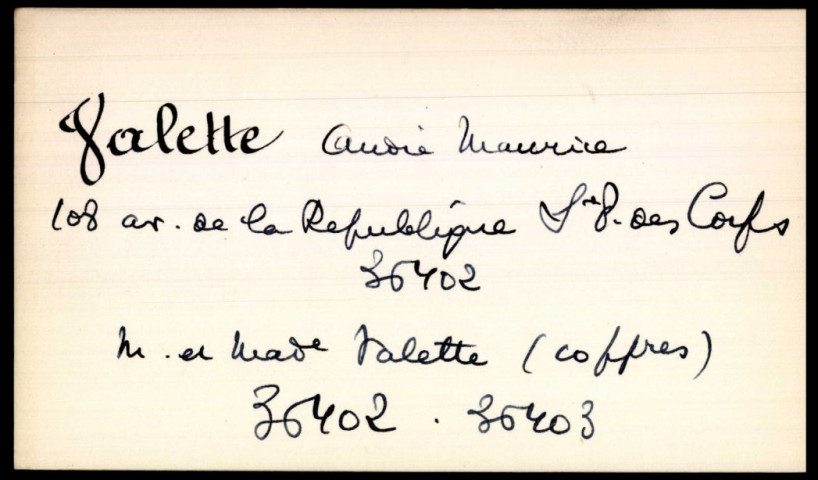 Valette André Maurice
108 av. de la Republique St P. des Corps
36402
M. et Made Valette (coffres)
36402 . 36403